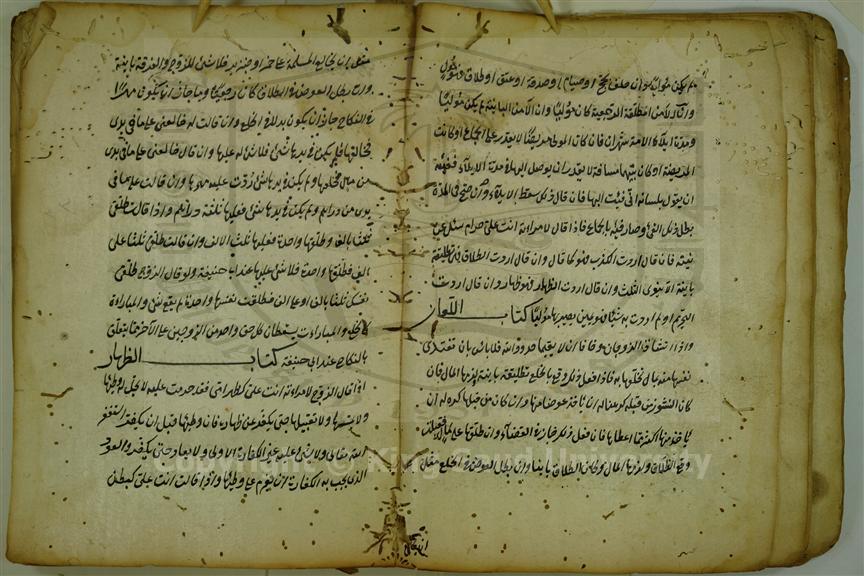 لم يكن موليا وان حلف بحج او صيام او صدقة او عتق او طلاق فهو مول
وان آلى من المطلقة الرجعية كان موليا وان آلى من البائنة لم يكن موليا
ومدة ايلاء الامة شهران فان كان المولي مريضا لا يقدر على الجماع او كانت
المريضة او كان بينهما مسافة لا يقدر ان يوصل اليها في مدة الايلاء ففيئه
ان يقول بلسانه فئت اليها فان قال ذلك سقط الايلاء وان صح في المدة
بطل ذلك الفئ وصار فيئه بالجماع فاذا قال لامرأته انت علي حرام سئل عن
نيته فان قال اردت الكذب فهو كما قال وان قال اردت الطلاق فهي تطليقة
بائنة الا ان ينوي الثلث وان قال اردت الظهار فهو ظهار وان قال اردت
التحريم او لم ارد به شيئا فهو يمين يصير بها موليا كتاب
واذا تشاق الزوجان وخافا ان لا يقيما حدود الله فلا بأس بان تفتدي
نفسها منه بمال يخلعها به فاذا فعل ذلك وقع بالخلع تطليقة بائنة ولزمها المال فان
كان النشوز من قبله كره له ان يأخذ عوضا منها وان كان من قبلها كره له ان
يأخذ منها اكثر مما اعطاها فان فعل ذلك جاز في القضاء وان طلقها على مال فقبلت
وقع الطلاق ولزمها المال وكان الطلاق بائنا وان بطل العوض في الخلع مثل
مثل ان يخالع المسلمة على خمر او خنزير فلا شئ للزوج والفرقة بائنة
وان بطل العوض في الطلاق كان رجعيا وما جاز ان يكون مهرا
في النكاح جاز ان يكون بدلا في الخلع وان قالت له خالعني على ما في يدي
فخالعها فلم يكن في يدها شئ فلا شئ له عليها وان قال خالعني على ما في يدي
من مال فخالعها ولم يكن في يدها شئ ردت عليه مهرها وان قالت على ما في
يدي من دراهم ولم يكن في يدها شئ فعليها ثلثة دراهم واذا قالت طلقني
ثلثا بالف وطلقها واحدة فعليها ثلث الالف وان قالت طلقني ثلثا على
الف فطلقها واحدة فلا شئ عليها عند ابي حنيفة ولو قال الزوج طلقي
نفسك ثلثا بالف او على الف فطلقت نفسها واحدة لم يقع شئ والمباراة
كالخلع والمباراة يسقطان كل حق واحد من الزوجين على الآخر مما يتعلق
بالنكاح عند ابي حنيفة كتاب الظهار
اذا قال الزوج لامرأته انت علي كظهر امي فقد حرمت عليه لا يحل له وطئها
ولا مسها ولا تقبيلها حتى يكفر عن ظهاره فان وطئها قبل ان يكفر استغفر
الله تعالى ولا شئ عليه غير الكفارة الاولى ولا يعاود حتى يكفر والعود
الذي يجب به الكفارة ان يعزم على وطئها واذا قالت انت علي كبطن
Copyright © King Saud University